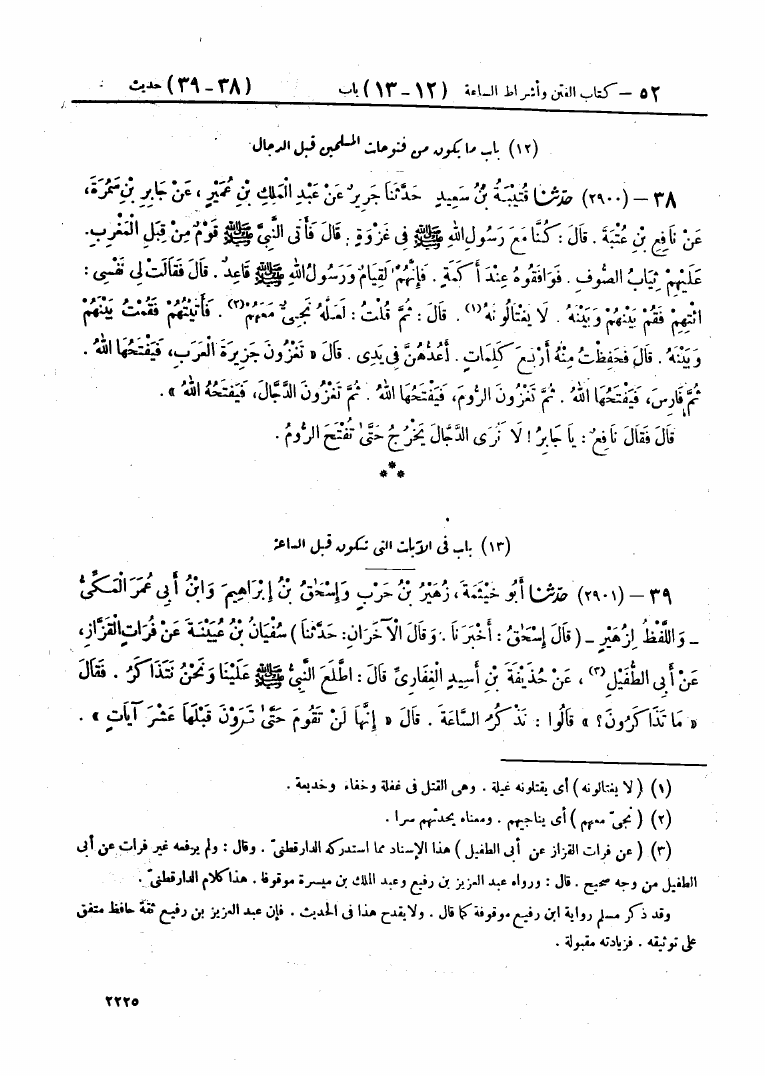 ٥٢ – كتاب الفتن وأشراط الساعة (١٢ – ١٣) باب (٣٨ – ٣٩) حديث
(١٢) باب ما يكون من فتوحات المسلمين قبل الدجال
٣٨ – (٢٩٠٠) حَدَّثَنَا قُتَيْبَةُ بْنُ سَعِيدٍ حَدَّثَنَا جَرِيرٌ عَنْ عَبْدِ الْمَلِكِ بْنِ عُمَيْرٍ، عَنْ جَابِرِ بْنِ سَمُرَةَ،
عَنْ نَافِعِ بْنِ عُتْبَةَ. قَالَ: كُنَّا مَعَ رَسُولِ اللهِ ﷺ فِي غَزْوَةٍ. قَالَ فَأَتَى النَّبِيَّ ﷺ قَوْمٌ مِنْ قِبَلِ الْمَغْرِبِ.
عَلَيْهِمْ ثِيَابُ الصُّوفِ. فَوَافَقُوهُ عِنْدَ أَكَمَةٍ. فَإِنَّهُمْ لَقِيَامٌ وَرَسُولُ اللهِ ﷺ قَاعِدٌ. قَالَ فَقَالَتْ لِي نَفْسِي:
ائْتِهِمْ فَقُمْ بَيْنَهُمْ وَبَيْنَهُ. لَا يَغْتَالُونَهُ(١). قَالَ: ثُمَّ قُلْتُ: لَعَلَّهُ نَجِيٌّ مَعَهُمْ(٢). فَأَتَيْتُهُمْ فَقُمْتُ بَيْنَهُمْ
وَبَيْنَهُ. قَالَ فَحَفِظْتُ مِنْهُ أَرْبَعَ كَلِمَاتٍ. أَعُدُّهُنَّ فِي يَدِي. قَالَ « تَغْزُونَ جَزِيرَةَ الْعَرَبِ، فَيَفْتَحُهَا اللهُ.
ثُمَّ فَارِسَ، فَيَفْتَحُهَا اللهُ. ثُمَّ تَغْزُونَ الرُّومَ، فَيَفْتَحُهَا اللهُ. ثُمَّ تَغْزُونَ الدَّجَّالَ، فَيَفْتَحُهُ اللهُ ».
قَالَ فَقَالَ نَافِعٌ: يَا جَابِرُ! لَا نَرَى الدَّجَّالَ يَخْرُجُ حَتَّىٰ تُفْتَحَ الرُّومُ.
***
(١٣) باب في الآيات التي تكون قبل الساعة
٣٩ – (٢٩٠١) حَدَّثَنَا أَبُو خَيْثَمَةَ، زُهَيْرُ بْنُ حَرْبٍ وَإِسْحَٰقُ بْنُ إِبْرَاهِيمَ وَابْنُ أَبِي عُمَرَ الْمَكِّيُّ
ـ وَاللَّفْظُ لِزُهَيْرٍ ـ (قَالَ إِسْحَٰقُ: أَخْبَرَنَا. وَقَالَ الْآخَرَانِ: حَدَّثَنَا) سُفْيَانُ بْنُ عُيَيْنَةَ عَنْ فُرَاتٍ الْقَزَّازِ،
عَنْ أَبِي الطُّفَيْلِ(٣)، عَنْ حُذَيْفَةَ بْنِ أَسِيدٍ الْغِفَارِيِّ قَالَ: اطَّلَعَ النَّبِيُّ ﷺ عَلَيْنَا وَنَحْنُ نَتَذَاكَرُ. فَقَالَ
« مَا تَذَاكَرُونَ؟ » قَالُوا: نَذْكُرُ السَّاعَةَ. قَالَ « إِنَّهَا لَنْ تَقُومَ حَتَّىٰ تَرَوْنَ قَبْلَهَا عَشْرَ آيَاتٍ ».
(١) (لا يغتالونه) أى يقتلونه غيلة. وهى القتل فى غفلة وخفاء وخديعة.
(٢) (نجىّ معهم) أى يناجيهم. ومعناه يحدثهم سرا.
(٣) (عن فرات القزاز عن أبى الطفيل) هذا الإسناد مما استدركه الدارقطنىّ. وقال: ولم يرفعه غير فرات عن أبى
الطفيل من وجه صحيح. قال: ورواه عبد العزيز بن رفيع وعبد الملك بن ميسرة موقوفا. هذا كلام الدارقطنىّ.
وقد ذكر مسلم رواية ابن رفيع موقوفة كما قال. ولا يقدح هذا فى الحديث. فإن عبد العزيز بن رفيع ثقة حافظ متفق
على توثيقه. فزيادته مقبولة.
٢٢٢٥